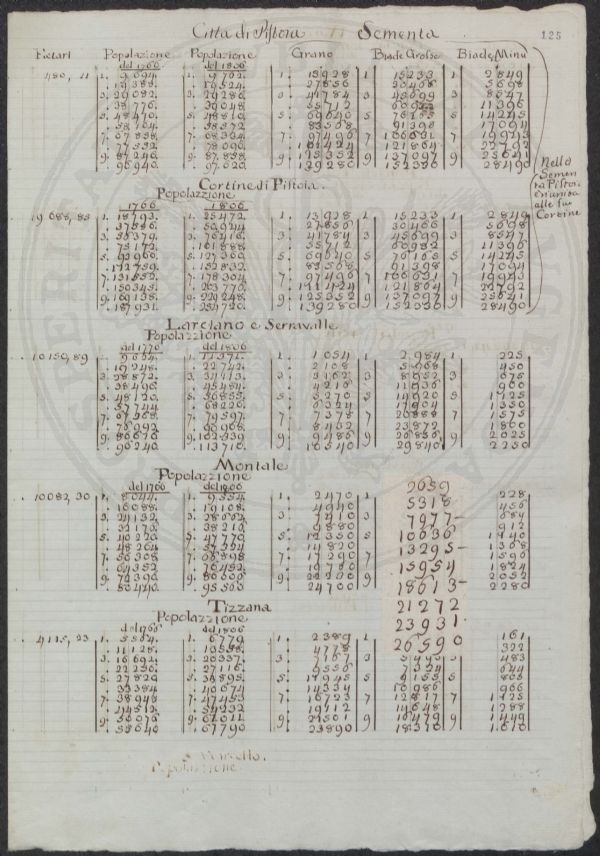 Città di Pistoia Sementa 125
Ectari Popolazione Popolazione Grano Biade Grosse Biade Minu
del 1766 del 1806
480, 11 1. 9694 1. 9702 1. 13928 1 15233 1 2849
19388 19524 27856 30466 5698
3. 29082 3. 29286 3 41784 3 45699 3 8547
38776 39048 55712 60932 11396
5. 48470 5. 48810 5. 69640 5 76165 5 14245
58164 58572 83568 91398 17094
7. 67858 7. 68334 7. 97496 7 106631 7 19943
77552 78096 111424 121864 22792
9. 87246 9. 87858 9. 125352 9 137097 9 25641
96940 97620 139280 152330 28490
Nella
Semen
ta Pistoi.
alle sue
Cortine
Cortine di Pistoia.
Popolazzione
1766 1806
19688,85 1. 18793 1. 25472 1. 13928 1 15233 1 2849
37586 50944 27856 30466 5698
3. 56379 3. 76416 3. 41784 3 45699 3 8547
75172 101888 55712 60932 11396
5. 93960 5. 127360 5. 69640 5 76165 5 14245
112759 152832 83568 91398 17094
7. 131552 7. 178304 7. 97496 7 106631 7 19940
150345 203776 111424 121864 22792
9. 169138 9. 229248 9. 125352 9 137097 9 25641
187931 254720 139280 152330 28490
Larciano e Seravalle
Popolazzione
del 1770 del 1806
10150,89 1. 9624 1. 11371 1. 1054 1 2984 1 225
19248 22742 2108 5968 450
3. 28872 3. 34113 3. 3162 3 8952 3 675
38496 45484 4216 11936 900
5. 48120 5. 56855 5. 5270 5 14920 5 1125
57744 68226 6324 17904 1350
7. 67368 7. 79597 7. 7378 7 20888 7 1575
76992 90968 8432 23872 1800
9. 86610 9. 102339 9. 9486 9 26856 9 2025
96240 113710 10540 29840 2250
Montale
Popolazzione
del 1766 del 1806
10082,30 1. 8044 1. 9554 1. 2470 2659 228
16088 19108 4940 5318 456
3. 24132 3. 28662 3. 7410 7977 684
32176 38216 9880 10636 912
5. 40220 5. 47770 5. 12350 13295 1140
48264 57324 14820 15954 1368
7. 56308 7. 66878 7. 17290 18613 1596
64352 76432 19760 21272 1824
9. 72396 9. 9. 22230 23931 2052
80440 95540 24700 26590 2280
Tizzana
Popolazzione
del 1766 del 1806
4115,23 1. 5564 1. 6779 1. 2389 1 161
11128 13558 4778 322
3. 16692 3. 20337 3. 7167 3 3 483
22256 27116 9556 7324 644
5. 27820 5. 33895 5. 11945 5 9155 5 805
33384 40674 14334 10986 966
7. 38948 7. 47453 7. 16723 7 12817 7 1125
44512 54232 19112 14648 1288
9. 50076 9. 61011 9. 21501 9 16479 9 1449
55640 67790 23890 18310 1610
Popolazzione